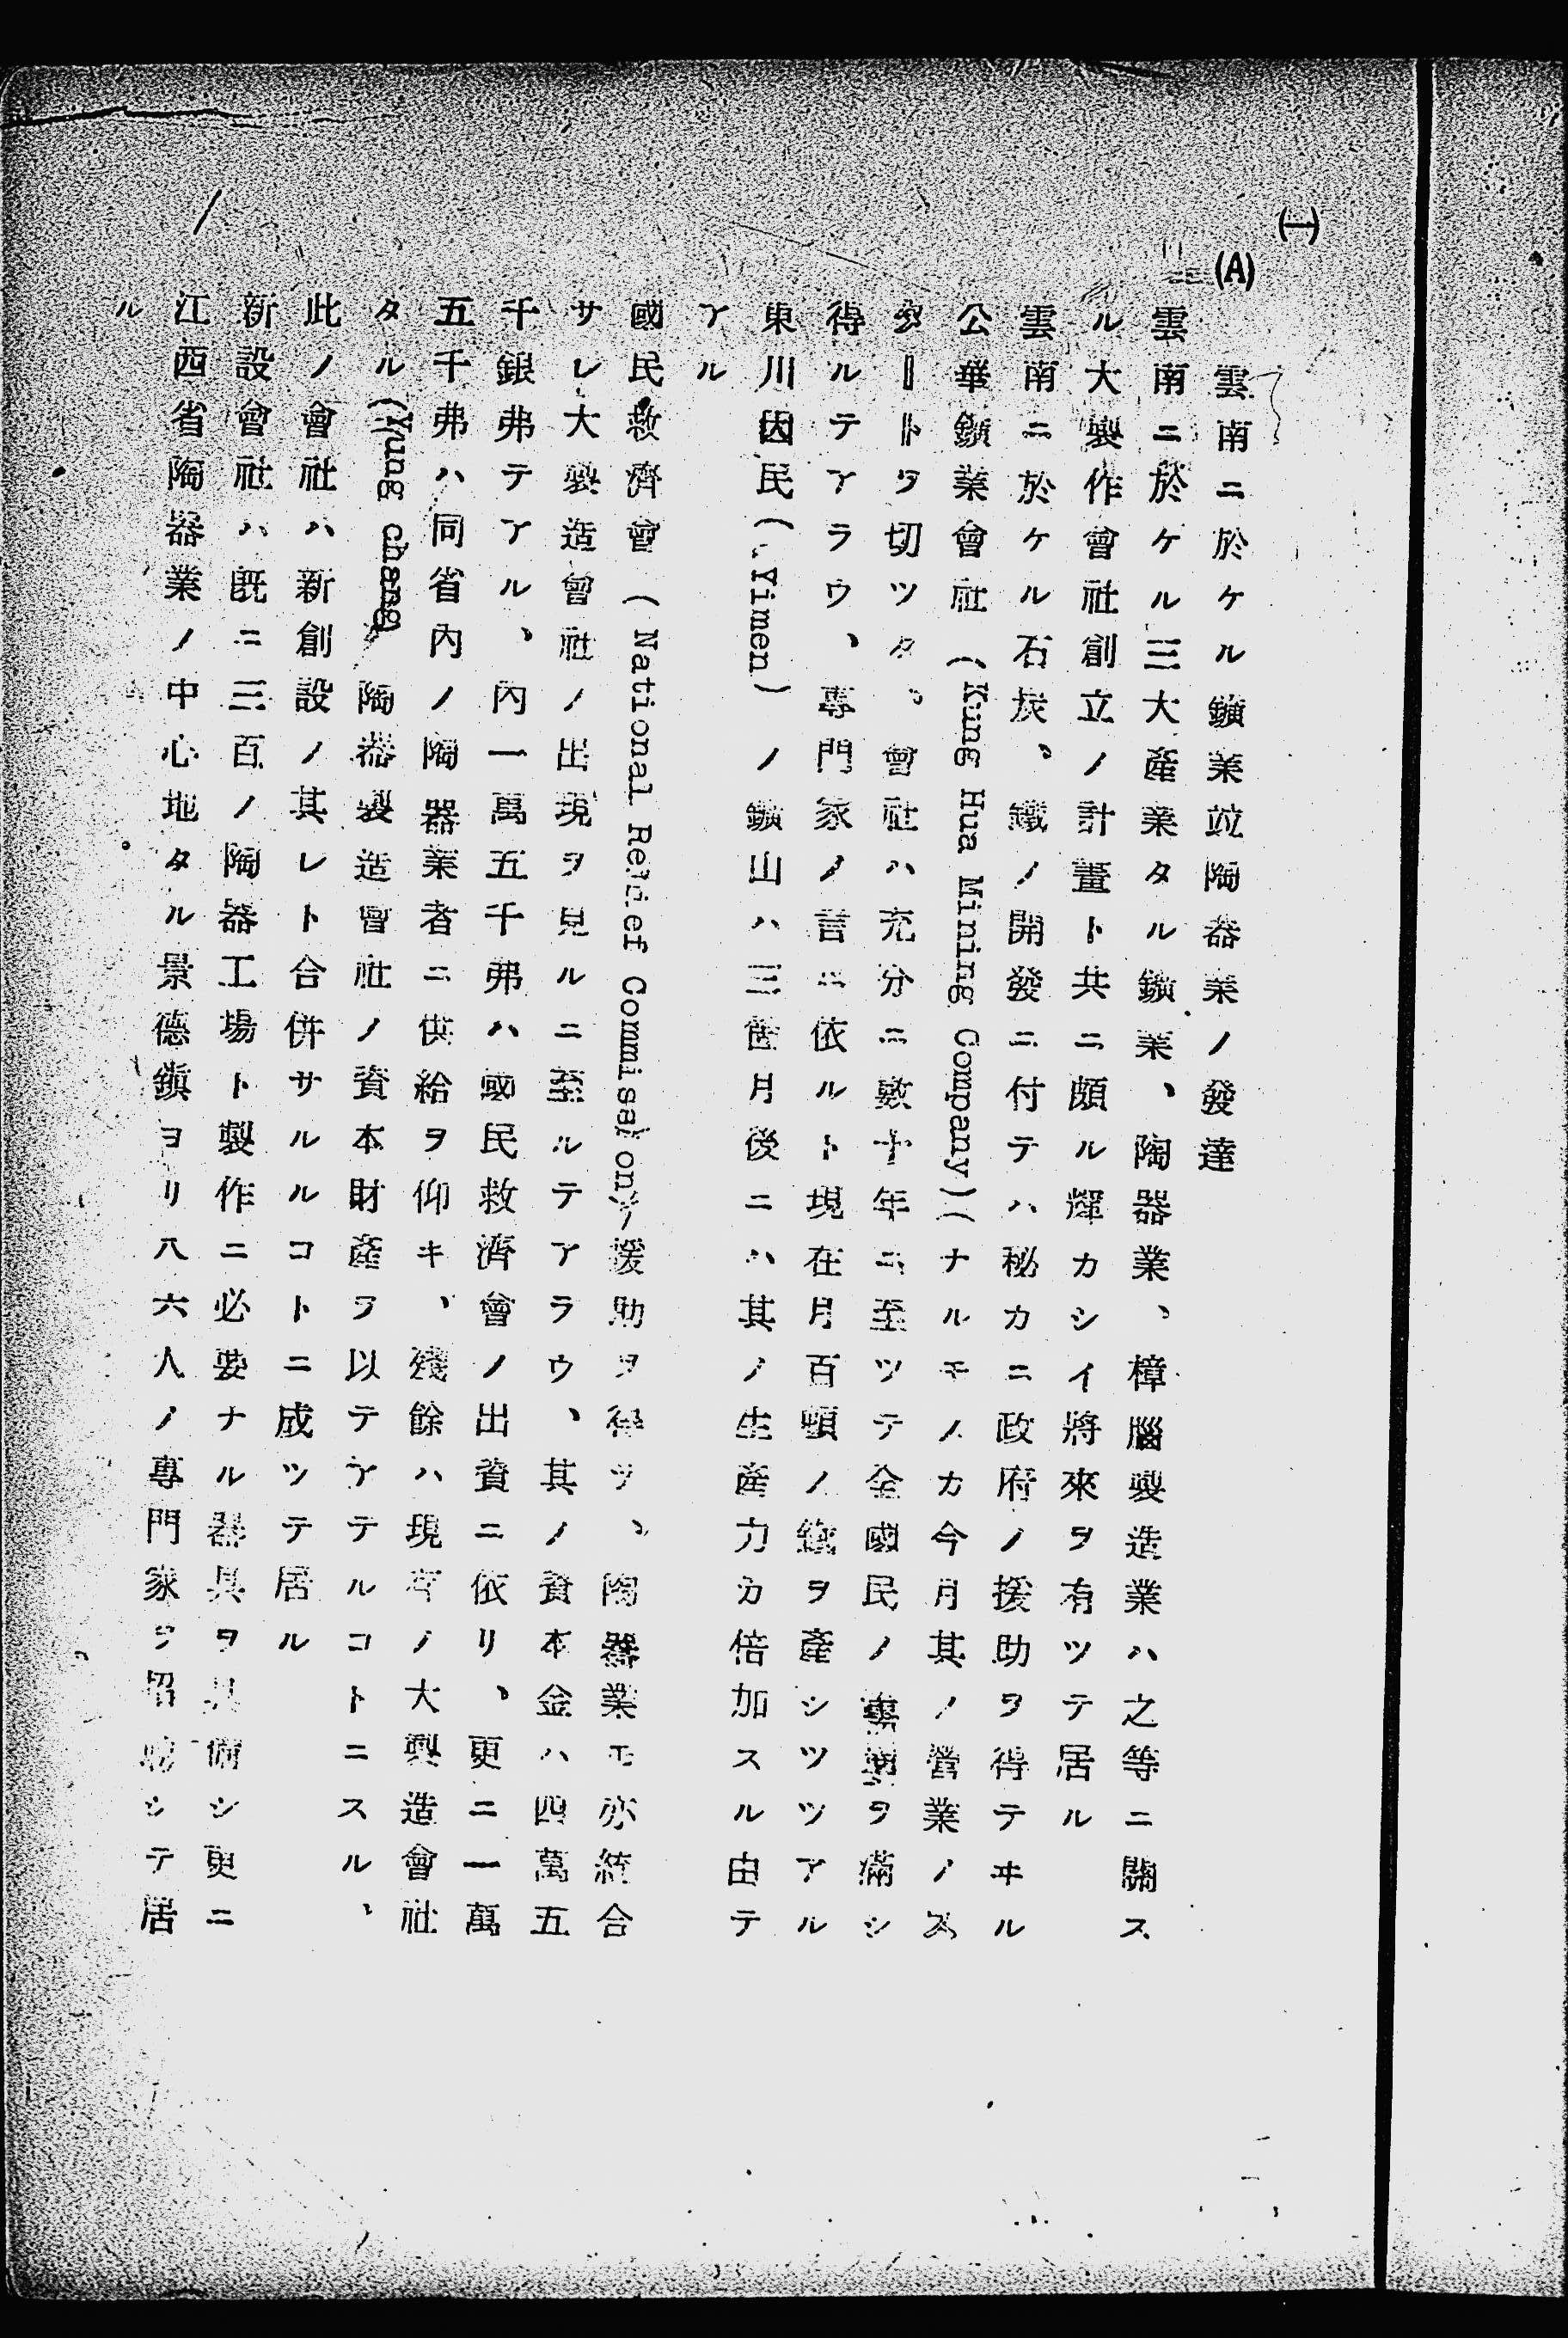 (一)
(A)
雲南ニ於ケル鑛業竝陶器業ノ發達
雲南ニ於ケル三大產業タル鑛業、陶器業、樟腦製造業ハ之等ニ關ス
ル大製作會社創立ノ計畫ト共ニ頗ル輝カシイ將來ヲ有ツテ居ル
雲南ニ於ケル石炭、鐵ノ開發ニ付テハ秘カニ政府ノ援助ヲ得テヰル
公華鑛業會社(Kung Hua Mining Company)(ナルモノカ今月其ノ營業ノス
タートヲ切ツタ。會社ハ充分ニ數十年ニ至ツテ全國民ノ需要ヲ滿シ
得ルテアラウ、專門家ノ言ニ依ルト現在月百頓ノ鐵ヲ產シツツアル
東川因民(Yimen)ノ鑛山ハ三箇月後ニハ其ノ生產力カ倍加スル由テ
アル
國民救濟會(National Relief Commission)ノ援助ヲ得ツ、陶器業モ亦統合
サレ大製造會社ノ出現ヲ見ルニ至ルテアラウ、其ノ資本金ハ四萬五
千銀弗テアル、內一萬五千弗ハ國民救濟會ノ出資ニ依リ、更ニ一萬
五千弗ハ同省內ノ陶器業者ニ供給ヲ仰キ、殘餘ハ現存ノ大製造會社
タル(Yung chang陶器製造會社ノ資本財產ヲ以テアテルコトニスル、
此ノ會社ハ新創設ノ其レト合併サルルコトニ成ツテ居ル
新設會社ハ既ニ三百ノ陶器工場ト製作ニ必要ナル器具ヲ具備シ更ニ
江西省陶器業ノ中心地タル景德鎭ヨリ八六人ノ專門家ヲ招聘シテ居
ル